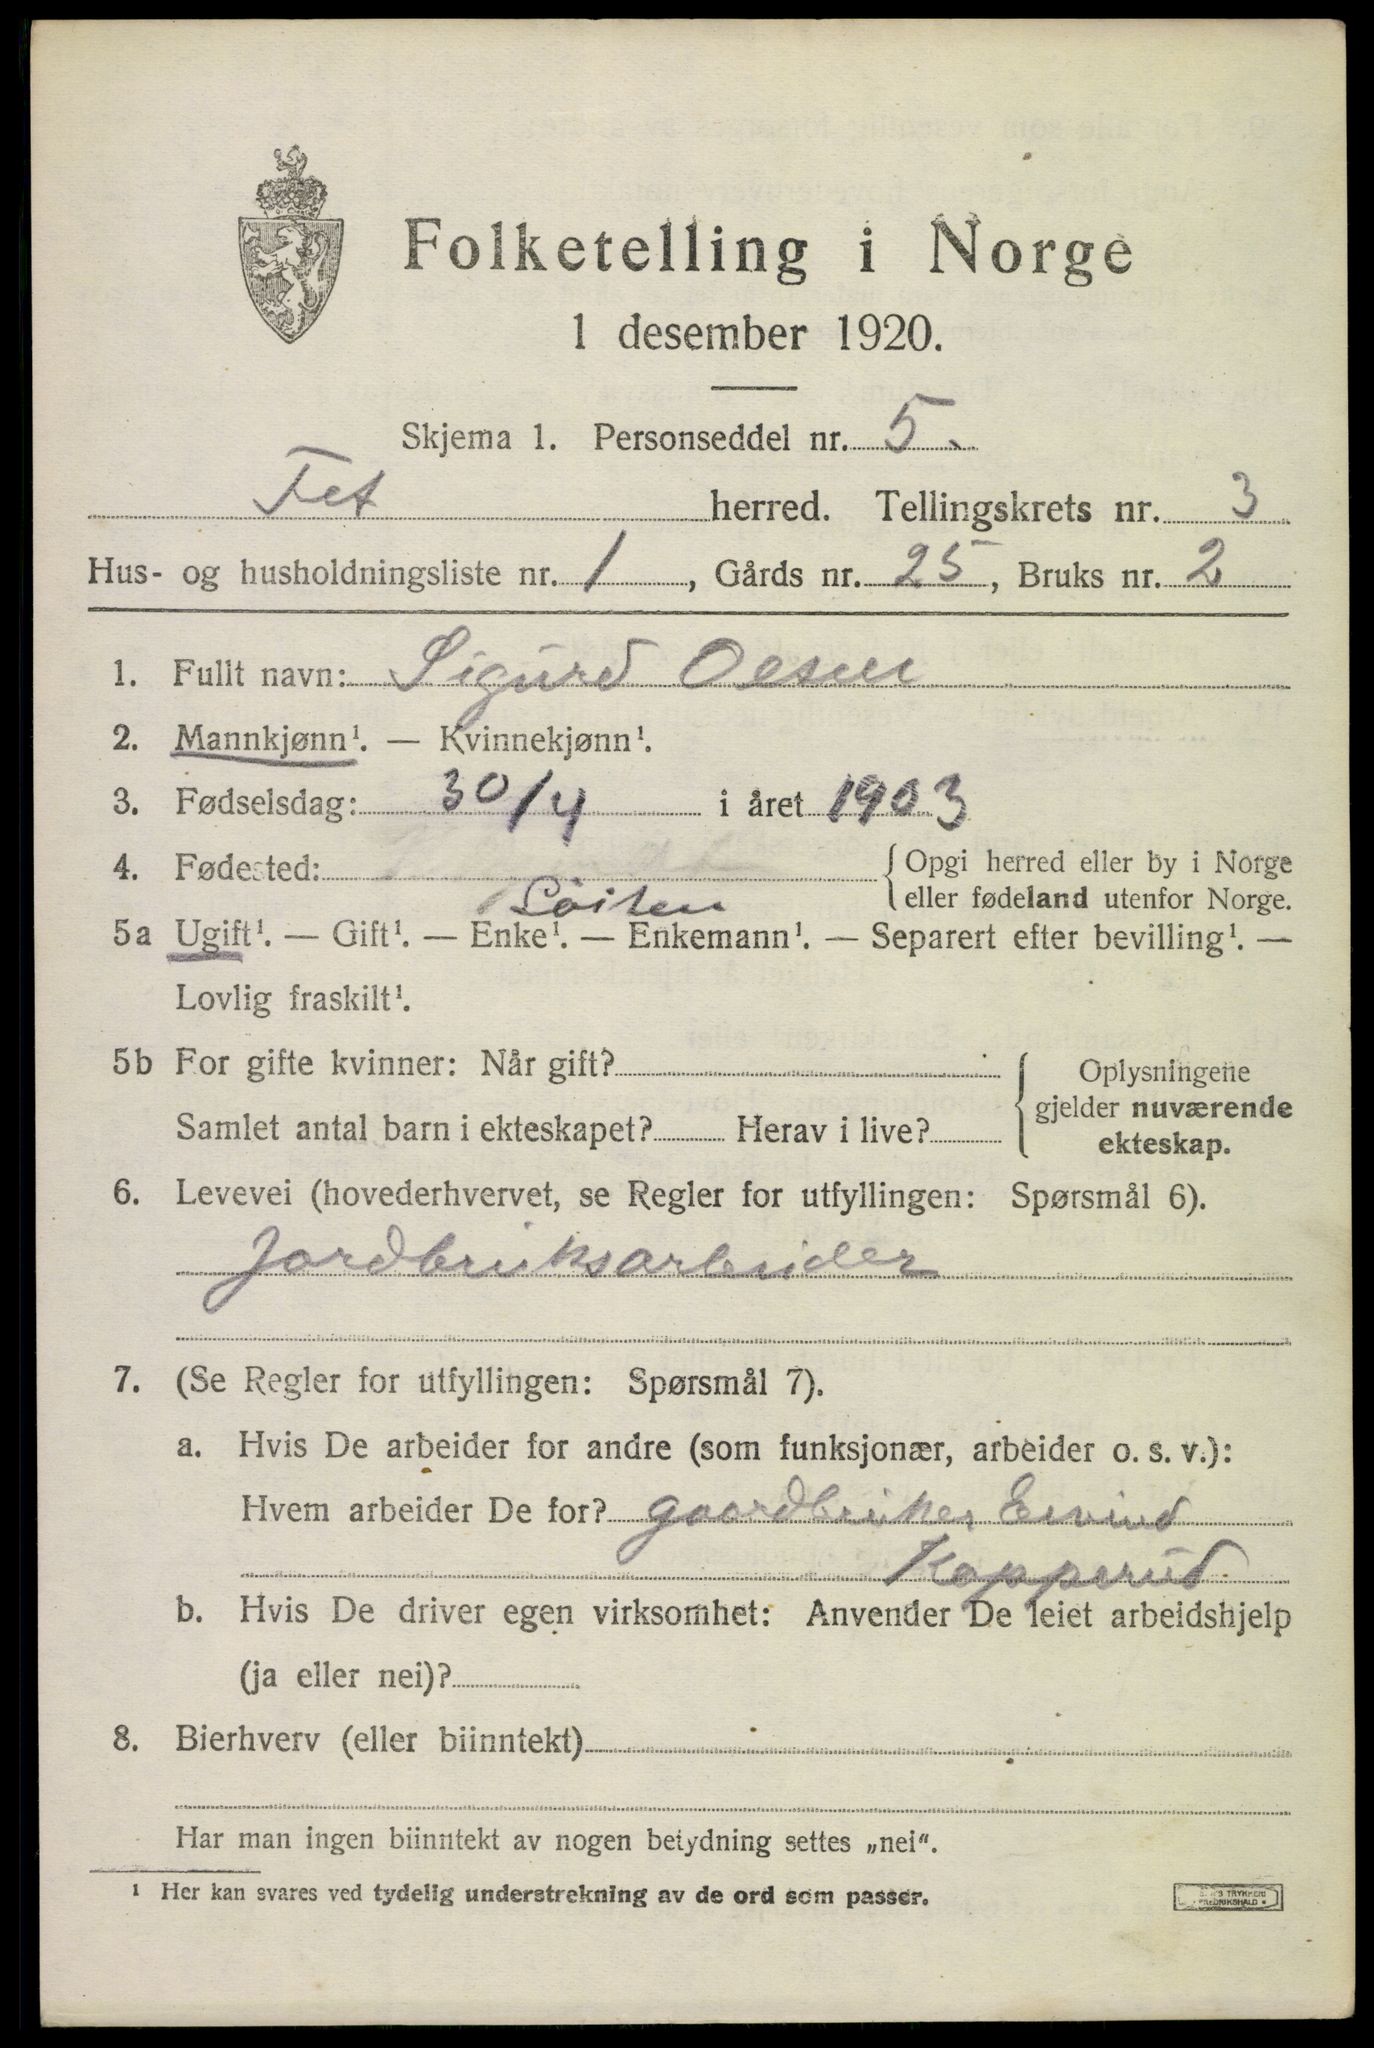 Folketelling i Norge
1 desember 1920.
Skjema 1. Personseddel nr. 5.
Fet herred. Tellingskrets nr. 3
Hus- og husholdningsliste nr. 1, Gårds nr. 25, Bruks nr. 2
1. Fullt navn: Sigurd
2. Mannkjønn¹. — Kvinnekjønn¹.
3. Fødselsdag: 30/4 i året 1903
4. Fødested: { Opgi herred eller by i Norge
eller fødeland utenfor Norge.
Löiten
5a Ugift¹. — Gift¹. — Enke¹. — Enkemann¹. — Separert efter bevilling¹. —
Lovlig fraskilt¹.
5b For gifte kvinner: Når gift? { Oplysningene
gjelder nuværende
Samlet antal barn i ekteskapet? Herav i live?
ekteskap.
6. Levevei (hovederhvervet, se Regler for utfyllingen: Spørsmål 6).
Jordbruksarbeider
7. (Se Regler for utfyllingen: Spørsmål 7).
a. Hvis De arbeider for andre (som funksjonær, arbeider o. s. v.):
Hvem arbeider De for? gaardbruker Eivind
Kopperud
b. Hvis De driver egen virksomhet: Anvender De leiet arbeidshjelp
(ja eller nei)?
8. Bierhverv (eller biinntekt)
Har man ingen biinntekt av nogen betydning settes „nei“.
¹ Her kan svares ved tydelig understrekning av de ord som passer.
TRYKKERI
FREDRIKSHALD